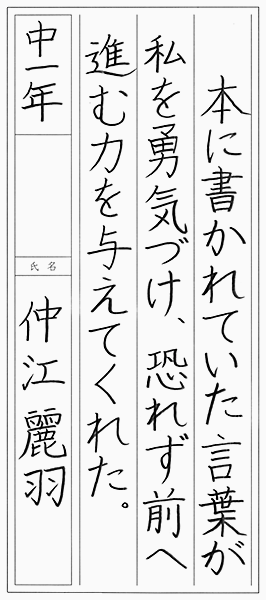 本に書かれていた言葉が
私を勇気づけ、恐れず前へ
進む力を与えてくれた。
中一年
氏名
仲江麗羽